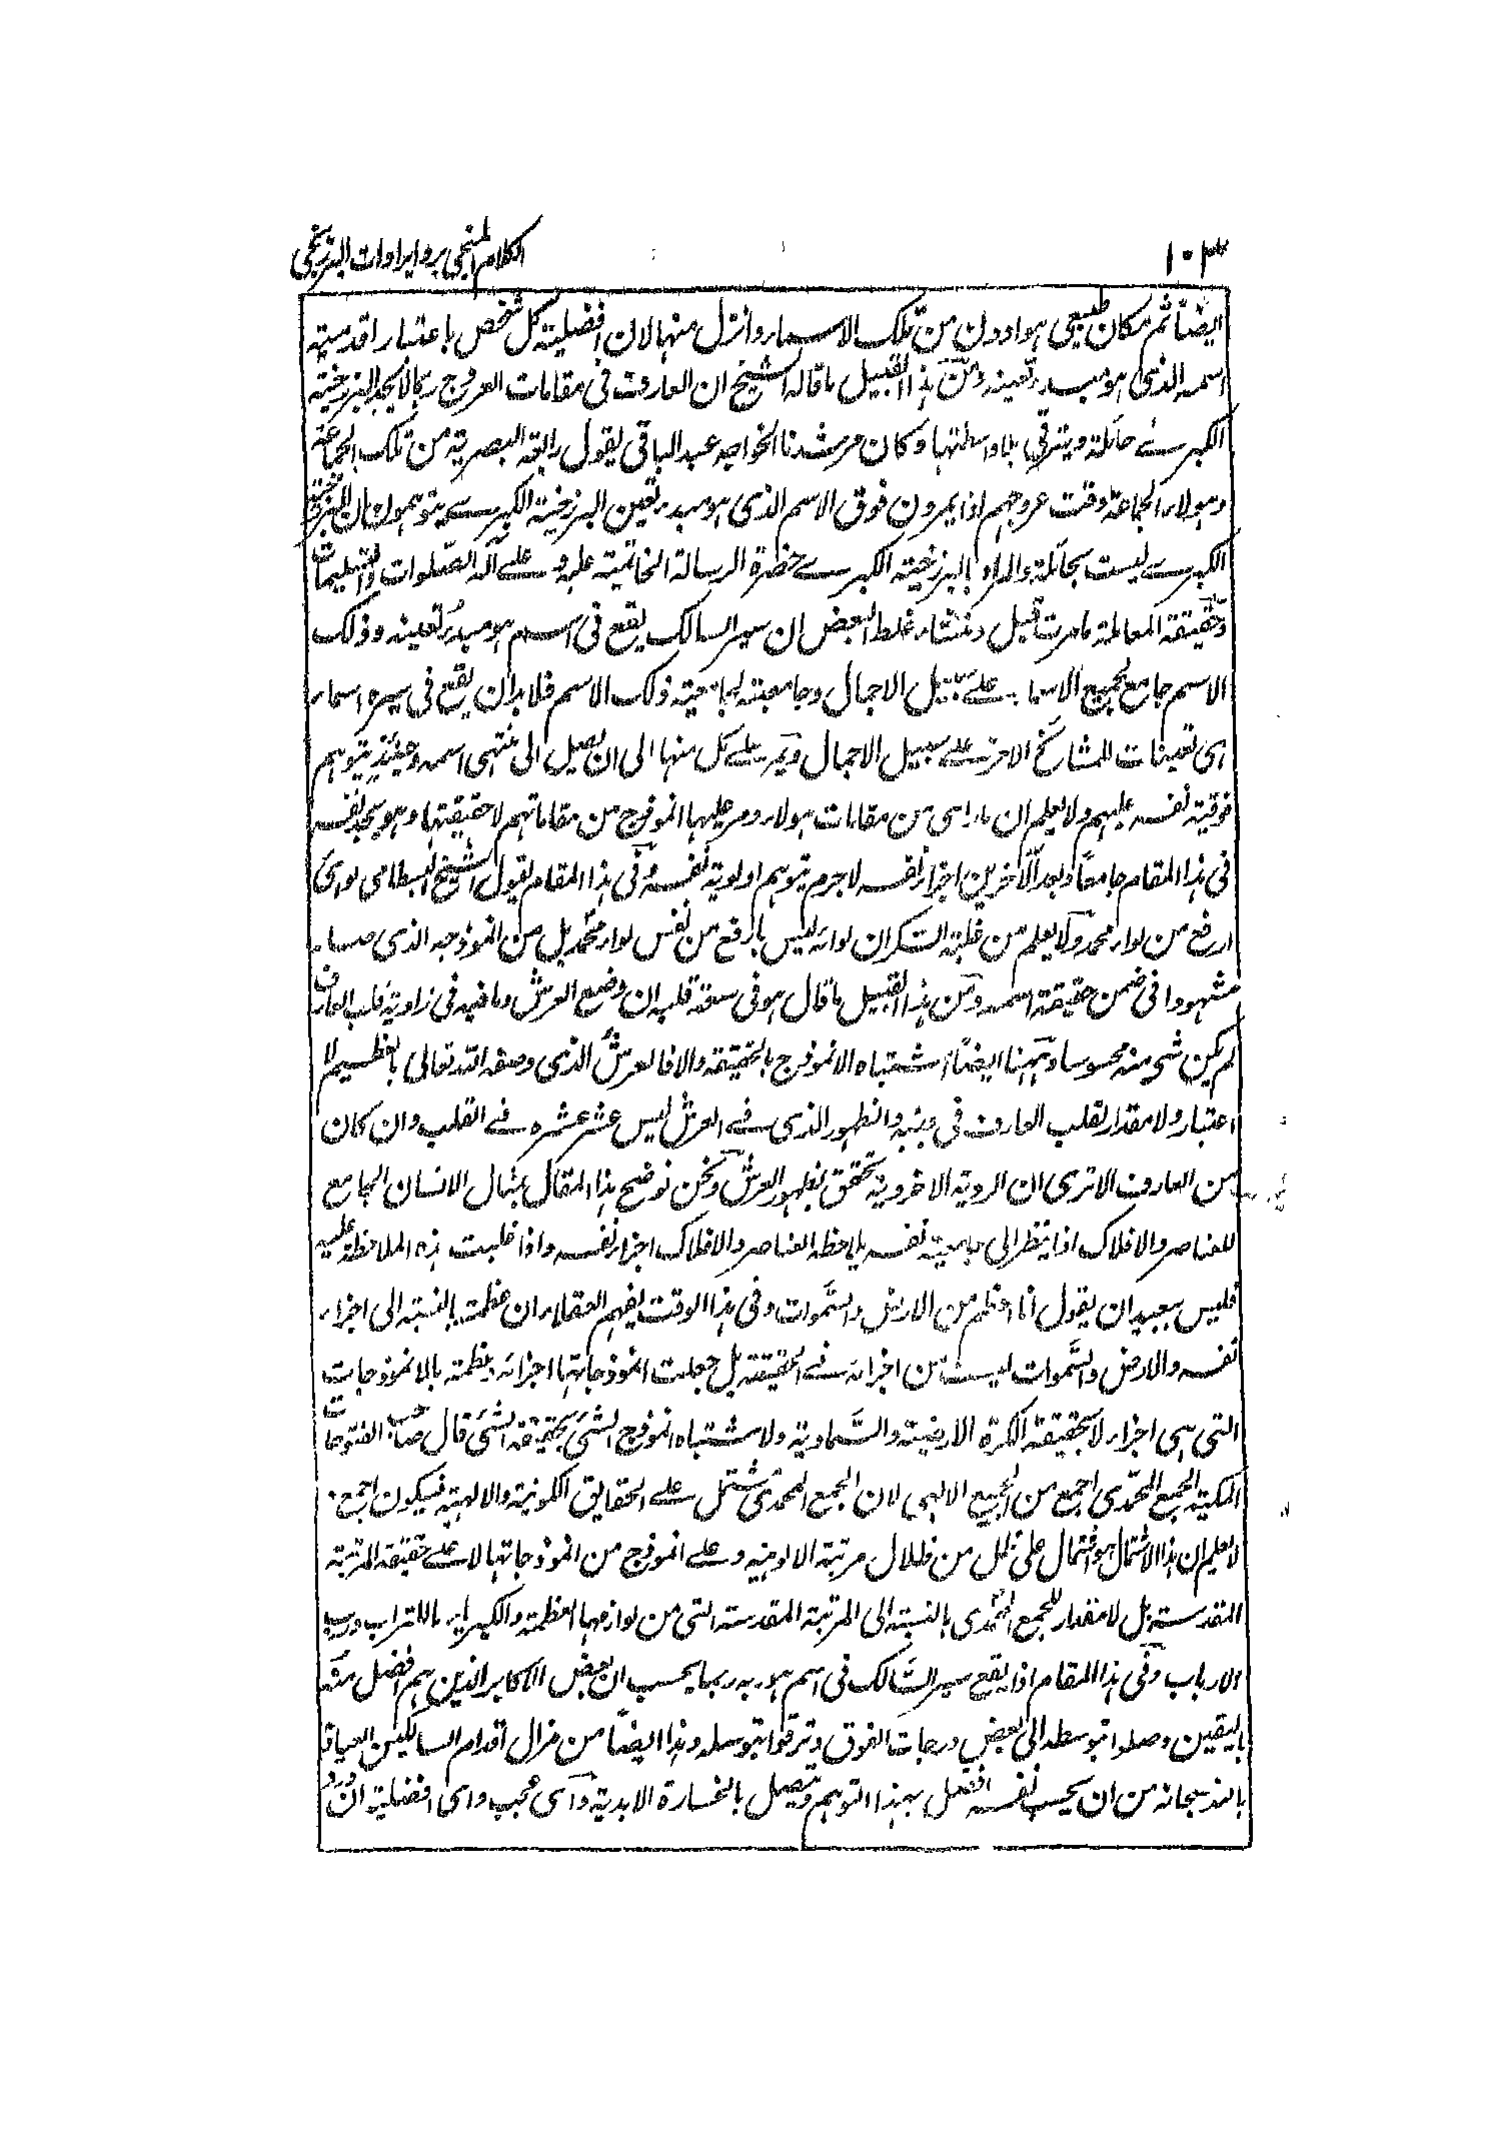 ١٠٣
الكلام المنجي برد ايرادات البرزنجي
ايضًا ثم مكان طبيعي هو ادون من تلك الاسماء وانزل منها لان افضلية كل شخص باعتبار اقدمية
اسمه الذي هو مبدء تعينه ومن هذا القبيل ما قاله الشيخ ان العارف في مقامات العروج ربما لا يجد البرزخية
الكبرى حائلة ويترقى بلا واسطتها وكان مرشدنا الخواجه عبد الباقي يقول رابعة البصرية من تلك الجماعة
وهولاء الجماعة وقت عروجهم اذا يمرون فوق الاسم الذي هو مبدء تعين البرزخية الكبرى يتوهمون ان البرزخية
الكبرى ليست بحائلة والمراد بالبرزخية الكبرى حضرة الرسالة الخاتمية عليه وعلى آله الصلوات والتسليمات
وحقيقة المعاملة ما مرت قبل ومنشاء غلط البعض ان سير السالك يقع في اسم هو مبدء تعينه وذلك
الاسم جامع لجميع الاسماء على سبيل الاجمال وجامعيته بجامعية ذلك الاسم فلا بد ان يقع في سيره اسماء
اي تعينات للمشائخ الاخر على سبيل الاجمال ويمر على كل منها الى ان يصل الى منتهى اسمه وحينئذ يتوهم
فوقية نفسه عليهم ولا يعلم ان ما راى من مقامات هولاء ومر عليها انموذج من مقاماتهم لا حقيقتها وهو يجد نفسه
في هذا المقام جامعًا ويعد الآخرين اجزاء نفسه لا جرم يتوهم اولوية نفسه وفي هذا المقام يقول الشيخ البسطامي لوائي
ارفع من لواء محمد ولا يعلم من غلبة السكر ان لوائه ليس بارفع من نفس لواء محمد بل من انموذجه الذي صار
مشهودا في ضمن حقيقة اسمه ومن هذا القبيل ما قال هو في سعة قلبه ان وضع العرش وما فيه في زاوية قلب العارف
لم يكن شئ منه محسوسا وههنا ايضًا اشتباه الانموذج بالحقيقة والا فالعرش الذي وصفه الله تعالى بالعظيم لا
اعتبار ولا مقدار لقلب العارف في جنبه والظهور الذي في العرش ليس عشر عشره في القلب وان كان
من العارف الا ترى ان الروية الاخروية تتحقق بظهور العرش ونحن نوضح هذا المقال بمثال الانسان الجامع
للعناصر والافلاك اذا ينظر الى جامعية نفسه يلاحظ العناصر والافلاك اجزاء نفسه واذا غلبت هذه الملاحظة عليه
فليس ببعيد ان يقول انا اعظم من الارض والسموات وفي هذا الوقت يفهم العقلاء ان عظمته بالنسبة الى اجزاء
نفسه والارض والسموات ليست من اجزائه في الحقيقة بل جعلت انموذجاتها اجزائه وعظمته بالانموذجات
التي هي اجزاء لا بحقيقة الكرة الارضية والسماوية ولاشتباه انموذج الشئ بحقيقة الشئ قال صاحب الفتوحات
المكية الجمع المحمدي اجمع من الجمع الالهي لان الجمع المحمدي مشتمل على الحقايق الكونية والالهية فيكون اجمع
لا يعلم ان هذا الاشتمال هو اشتمال على ظل من ظلال مرتبة الالوهية وعلى انموذج من انموذجاتها لا على حقيقة المرتبة
المقدسة بل لا مقدار للجمع المحمدي بالنسبة الى المرتبة المقدسة التي من لوازمها العظمة والكبرياء ما للتراب ورب
الارباب وفي هذا المقام اذا يقع سير السالك في اسم هو ربه ربما يحسب ان بعض الاكابر الذين هم افضل منه
باليقين وصلوا بتوسطه الى بعض درجات الفوق وترقوا بتوسله وهذا ايضًا من مزال اقدام السالكين العياذ
بالله سبحانه من ان يحسب نفسه افضل بهذا التوهم ويتصل بالخسارة الابدية واي عجب واي افضلية ان ورد